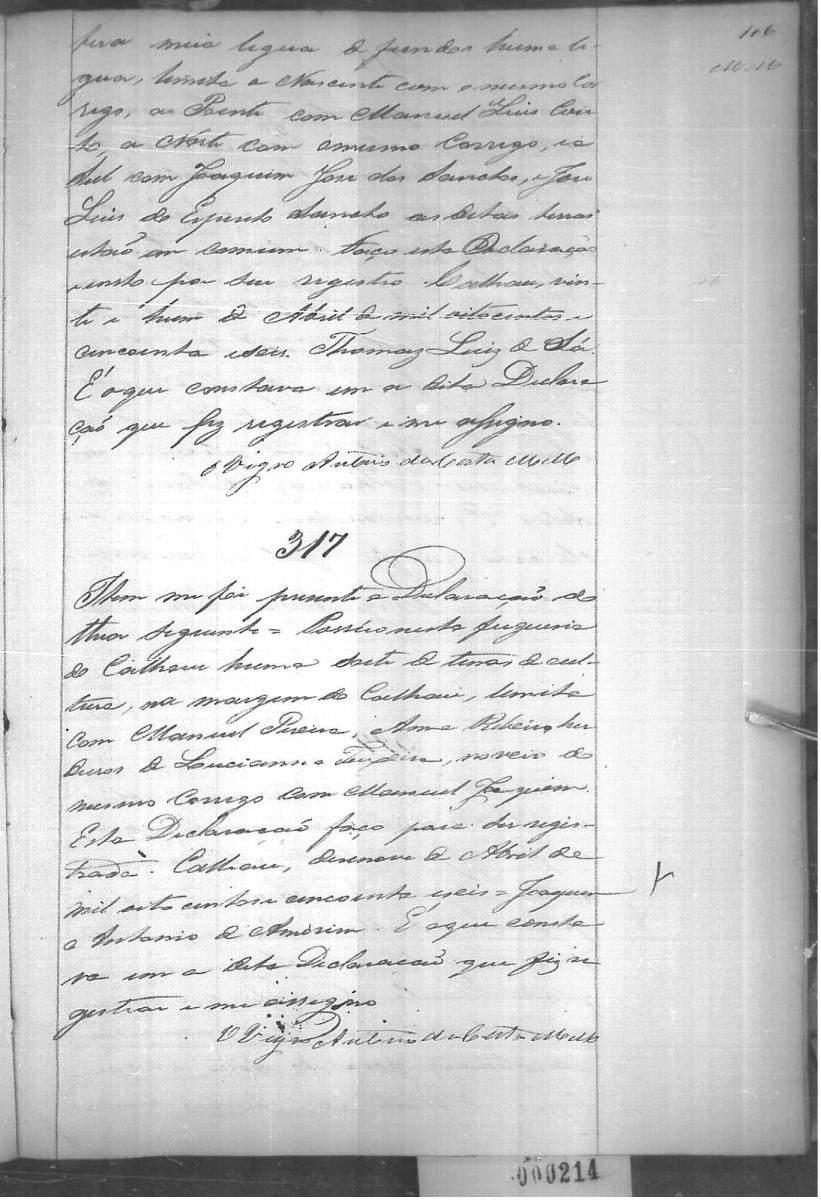 106
M. M.
tera meia legua de fundos huma le-
gua, limita a Nascente com o mesmo Cor
rego, a Poente com Manuel Luis Cou
to, a Norte com o mesmo Corrego, e a
Sul com Joaquim Jose dos Sanctos, e Jose
Luis do Espirito Sancto as ditas terras
estão em comum. Faço esta Declaração
por seu registro Calhau, vin-
te e hum de Abril de mil oitocentos e
cincoenta e seis. Thomaz Luiz de Sá.
É o que constava em a dita Declara
ção que fiz registrar e me assigno.
O Vigro Antonio da Costa M.M.
317
Item me foi presente a Declaração do
theor seguinte = Possuo nesta freguesia
do Calhau huma sorte de terras de cul-
tura, na margem do Calhau, limita
com Manuel Pereira, Anna Ribeiro her
deiros de Lucianna Teixeira, no veio do
mesmo Corrego com Manuel Joaquim.
Esta Declaração faço para ser regis-
trada. Calhau, desenove de Abril de
mil oito centos e cincoenta e seis = Joaquim
Antonio de Amorim. É o que consta
va em a dita Declaração que fiz re
gistrar e me assigno
O Vigro Antonio da Costa M.M.
000214